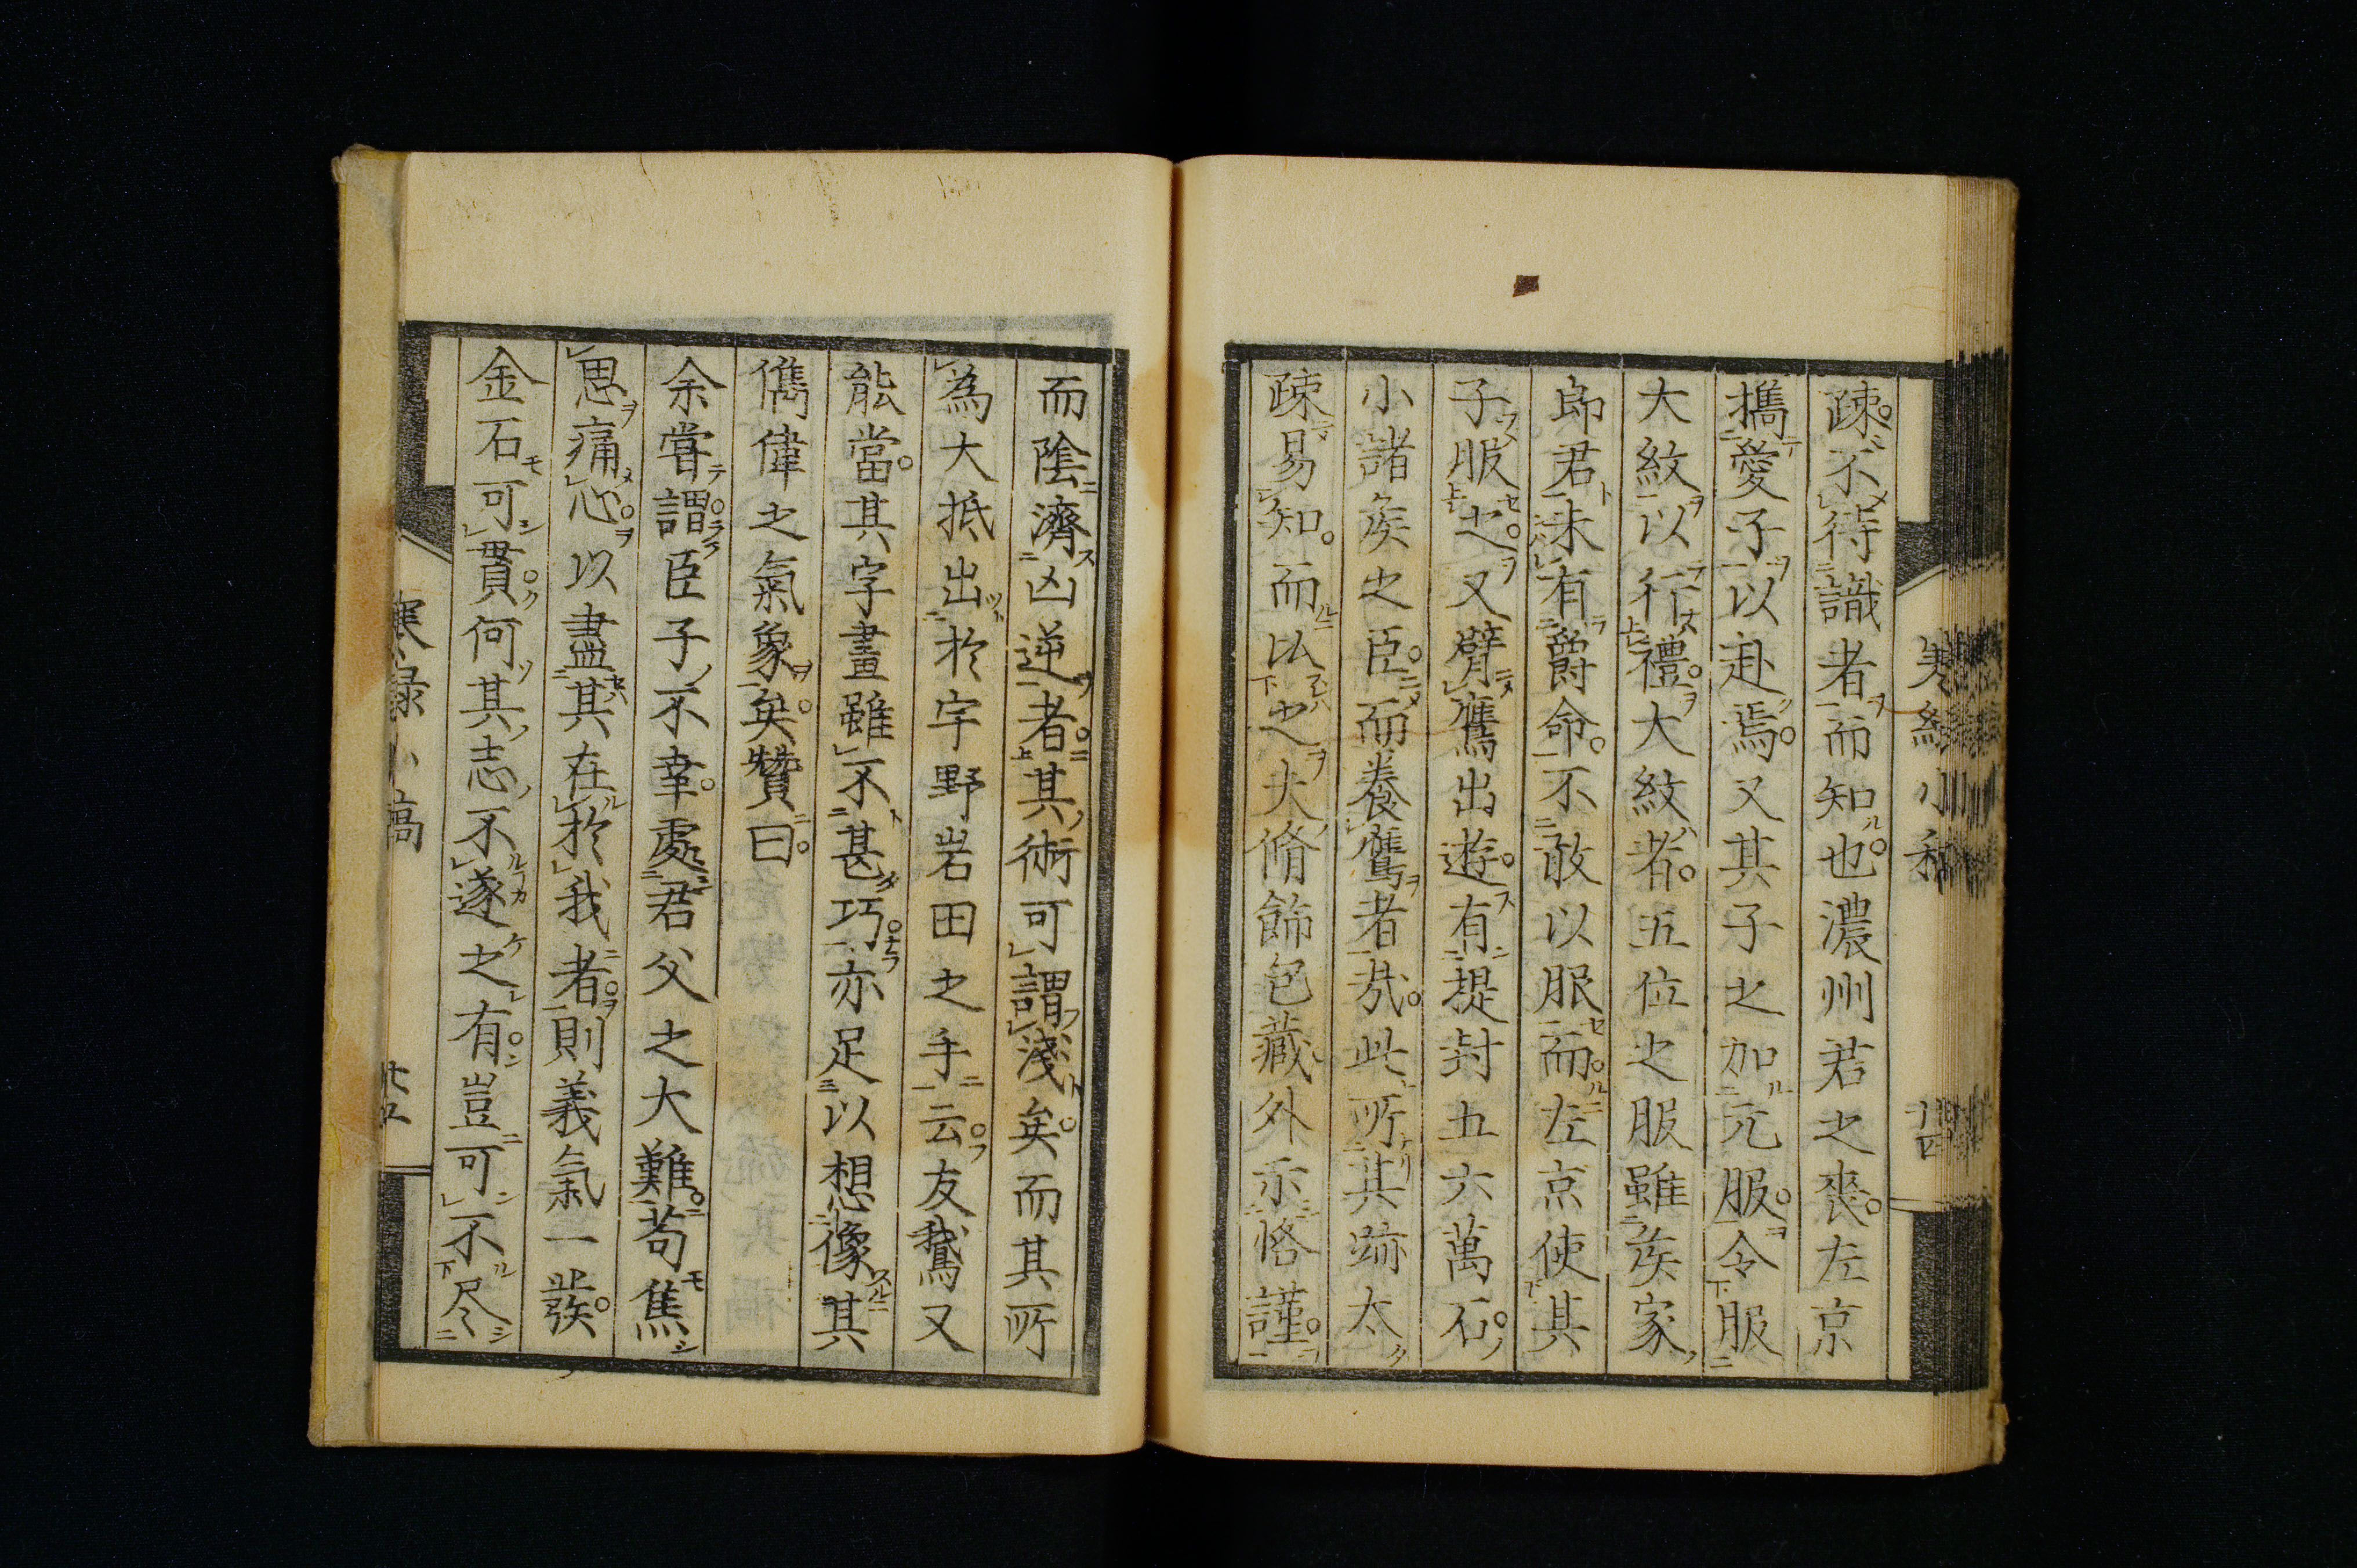 疎不待識者而知也濃州君之喪左京
攜愛子以赴焉又其子之加元服令服
大紋以行禮大紋者五位之服雖矦家
郎君未有爵命不敢以服而左京使其
子服之又臂鷹出遊有提封五六萬石
小諸矦之臣而養鷹者哉此所其跡太
疎易知而以之夫脩飾包藏外示恪謹
而陰濟凶逆者其術可謂淺矣而其所
為大抵出於宇野岩田之手云友鵞又
能當其字畫雖不甚巧亦足以想像其
儁偉之氣象矣贊曰
余嘗謂臣子不幸處君父之大難苟焦
思痛心以盡其在於我者則義氣一發
金石可貫何其志不遂之有豈可不尽